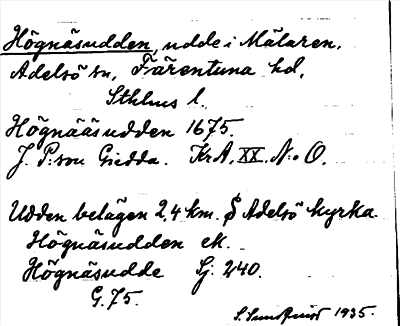 Högnäsudden, udde i Mälaren,
Adelsö sn, Färentuna hd,
Sthlms l.
Högnääsudden 1675.
J. P:son Giedda. Kr A. XX. N:o O.
Udden belägen 2,4 km. S Adelsö kyrka.
Högnäsudden ek.
Högnäsudde Sj. 240.
G. 75.
S. Sundquist 1935.